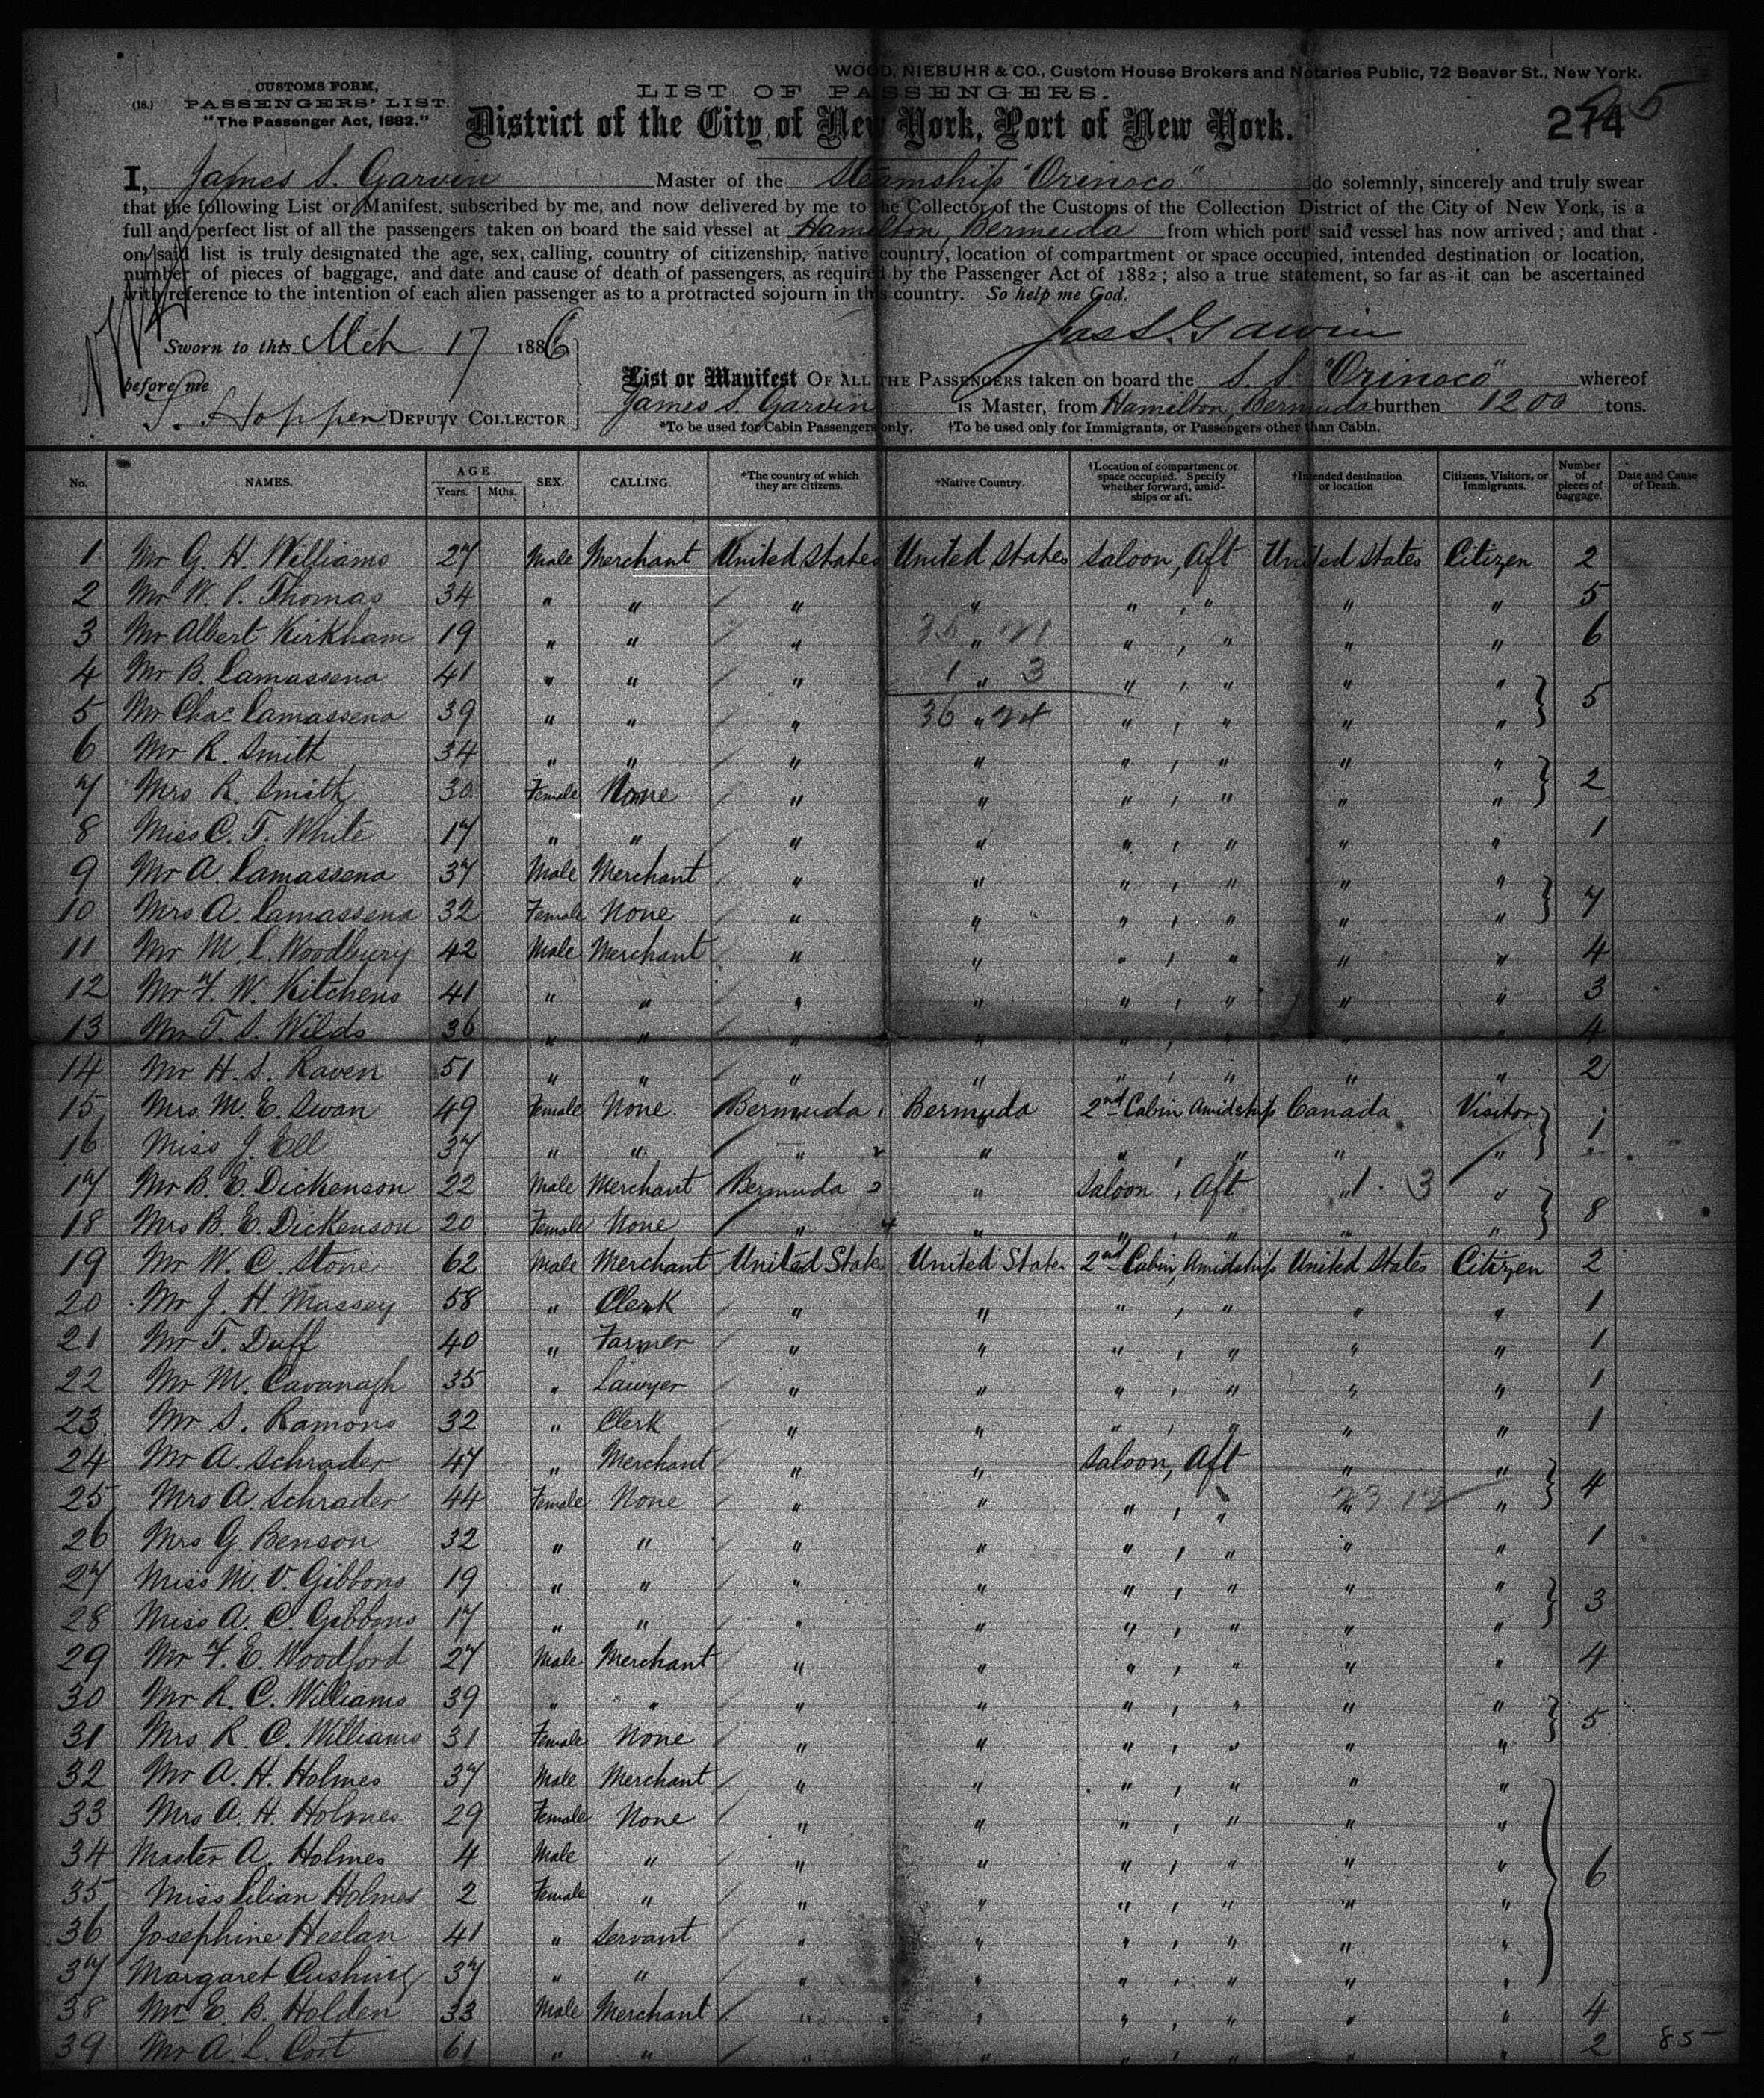 WOOD, NIEBUHR & CO., Custom House Brokers and Notaries Public, 72 Beaver St., New York.
CUSTOMS FORM,
(18.) PASSENGERS' LIST.
"The Passenger Act, 1882."
LIST OF PASSENGERS.
District of the City of New York, Port of New York.
274
I, James S. Garvin Master of the Steamship "Orinoco" do solemnly, sincerely and truly swear
that the following List or Manifest, subscribed by me, and now delivered by me to the Collector of the Customs of the Collection District of the City of New York, is a
full and perfect list of all the passengers taken on board the said vessel at Hamilton, Bermuda from which port said vessel has now arrived; and that
on said list is truly designated the age, sex, calling, country of citizenship, native country, location of compartment or space occupied, intended destination or location,
number of pieces of baggage, and date and cause of death of passengers, as required by the Passenger Act of 1882; also a true statement, so far as it can be ascertained
with reference to the intention of each alien passenger as to a protracted sojourn in this country. So help me God.
Jas S. Garvin
Sworn to this Mch 17 1886
before me
Hoppen DEPUTY COLLECTOR
List or Manifest OF ALL THE PASSENGERS taken on board the S. S. "Orinoco" whereof
James S. Garvin is Master, from Hamilton, Bermuda burthen 1200 tons.
*To be used for Cabin Passengers only. †To be used only for Immigrants, or Passengers other than Cabin.
No. NAMES. AGE. Years. Mths. SEX. CALLING. *The country of which they are citizens. †Native Country. †Location of compartment or space occupied. Specify whether forward, amidships or aft. †Intended destination or location Citizens, Visitors, or Immigrants. Number of pieces of baggage. Date and Cause of Death.
1 Mr G. H. Williams 27 Male Merchant United States United States Saloon, Aft United States Citizen 2
2 Mr W. P. Thomas 34 " " " " " , " " " 5
3 Mr Albert Kirkham 19 " " " " " , " " " 6
4 Mr B. Lamassena 41 " " " " " , " " "
5 Mr Chas Lamassena 39 " " " " " , " " " 5
6 Mr R. Smith 34 " " " " " , " " "
7 Mrs R. Smith 30 Female None " " " , " " " 2
8 Miss C. T. White 17 " " " " " , " " " 1
9 Mr A. Lamassena 37 Male Merchant " " " , " " "
10 Mrs A. Lamassena 32 Female None " " " , " " " 7
11 Mr M. L. Woodbury 42 Male Merchant " " " , " " " 4
12 Mr F. W. Kitchens 41 " " " " " , " " " 3
13 Mr T. S. Wilds 36 " " " " " , " " " 4
14 Mr H. S. Raven 51 " " " " " , " " " 2
15 Mrs M. E. Swan 49 Female None Bermuda Bermuda 2nd Cabin Amidship Canada Visitor
16 Miss J. Ell 37 " " " " " , " " " 1
17 Mr B. E. Dickenson 22 Male Merchant Bermuda " Saloon, Aft " "
18 Mrs B. E. Dickenson 20 Female None " " " , " " " 8
19 Mr W. C. Stone 62 Male Merchant United States United States 2nd Cabin, Amidships United States Citizen 2
20 Mr J. H. Massey 58 " Clerk " " " , " " " 1
21 Mr T. Duff 40 " Farmer " " " , " " " 1
22 Mr M. Cavanagh 35 " Lawyer " " " , " " " 1
23 Mr S. Ramons 32 " Clerk " " " , " " " 1
24 Mr A. Schrader 47 " Merchant " " Saloon, Aft " "
25 Mrs A. Schrader 44 Female None " " " , " " " 4
26 Mrs G. Benson 32 " " " " " , " " " 1
27 Miss M. V. Gibbons 19 " " " " " , " " "
28 Miss A. C. Gibbons 17 " " " " " , " " " 3
29 Mr F. E. Woodford 27 Male Merchant " " " , " " " 4
30 Mr R. C. Williams 39 " " " " " , " " "
31 Mrs R. C. Williams 31 Female None " " " , " " " 5
32 Mr A. H. Holmes 37 Male Merchant " " " , " " "
33 Mrs A. H. Holmes 29 Female None " " " , " " "
34 Master A. Holmes 4 Male " " " " , " " " 6
35 Miss Lilian Holmes 2 Female " " " " , " " "
36 Josephine Heelan 41 " Servant " " " , " " "
37 Margaret Cushing 37 " " " " " , " " "
38 Mr E. B. Holden 33 Male Merchant " " " , " " " 4
39 Mr A. L. Cort 61 " " " " " , " " " 2 85